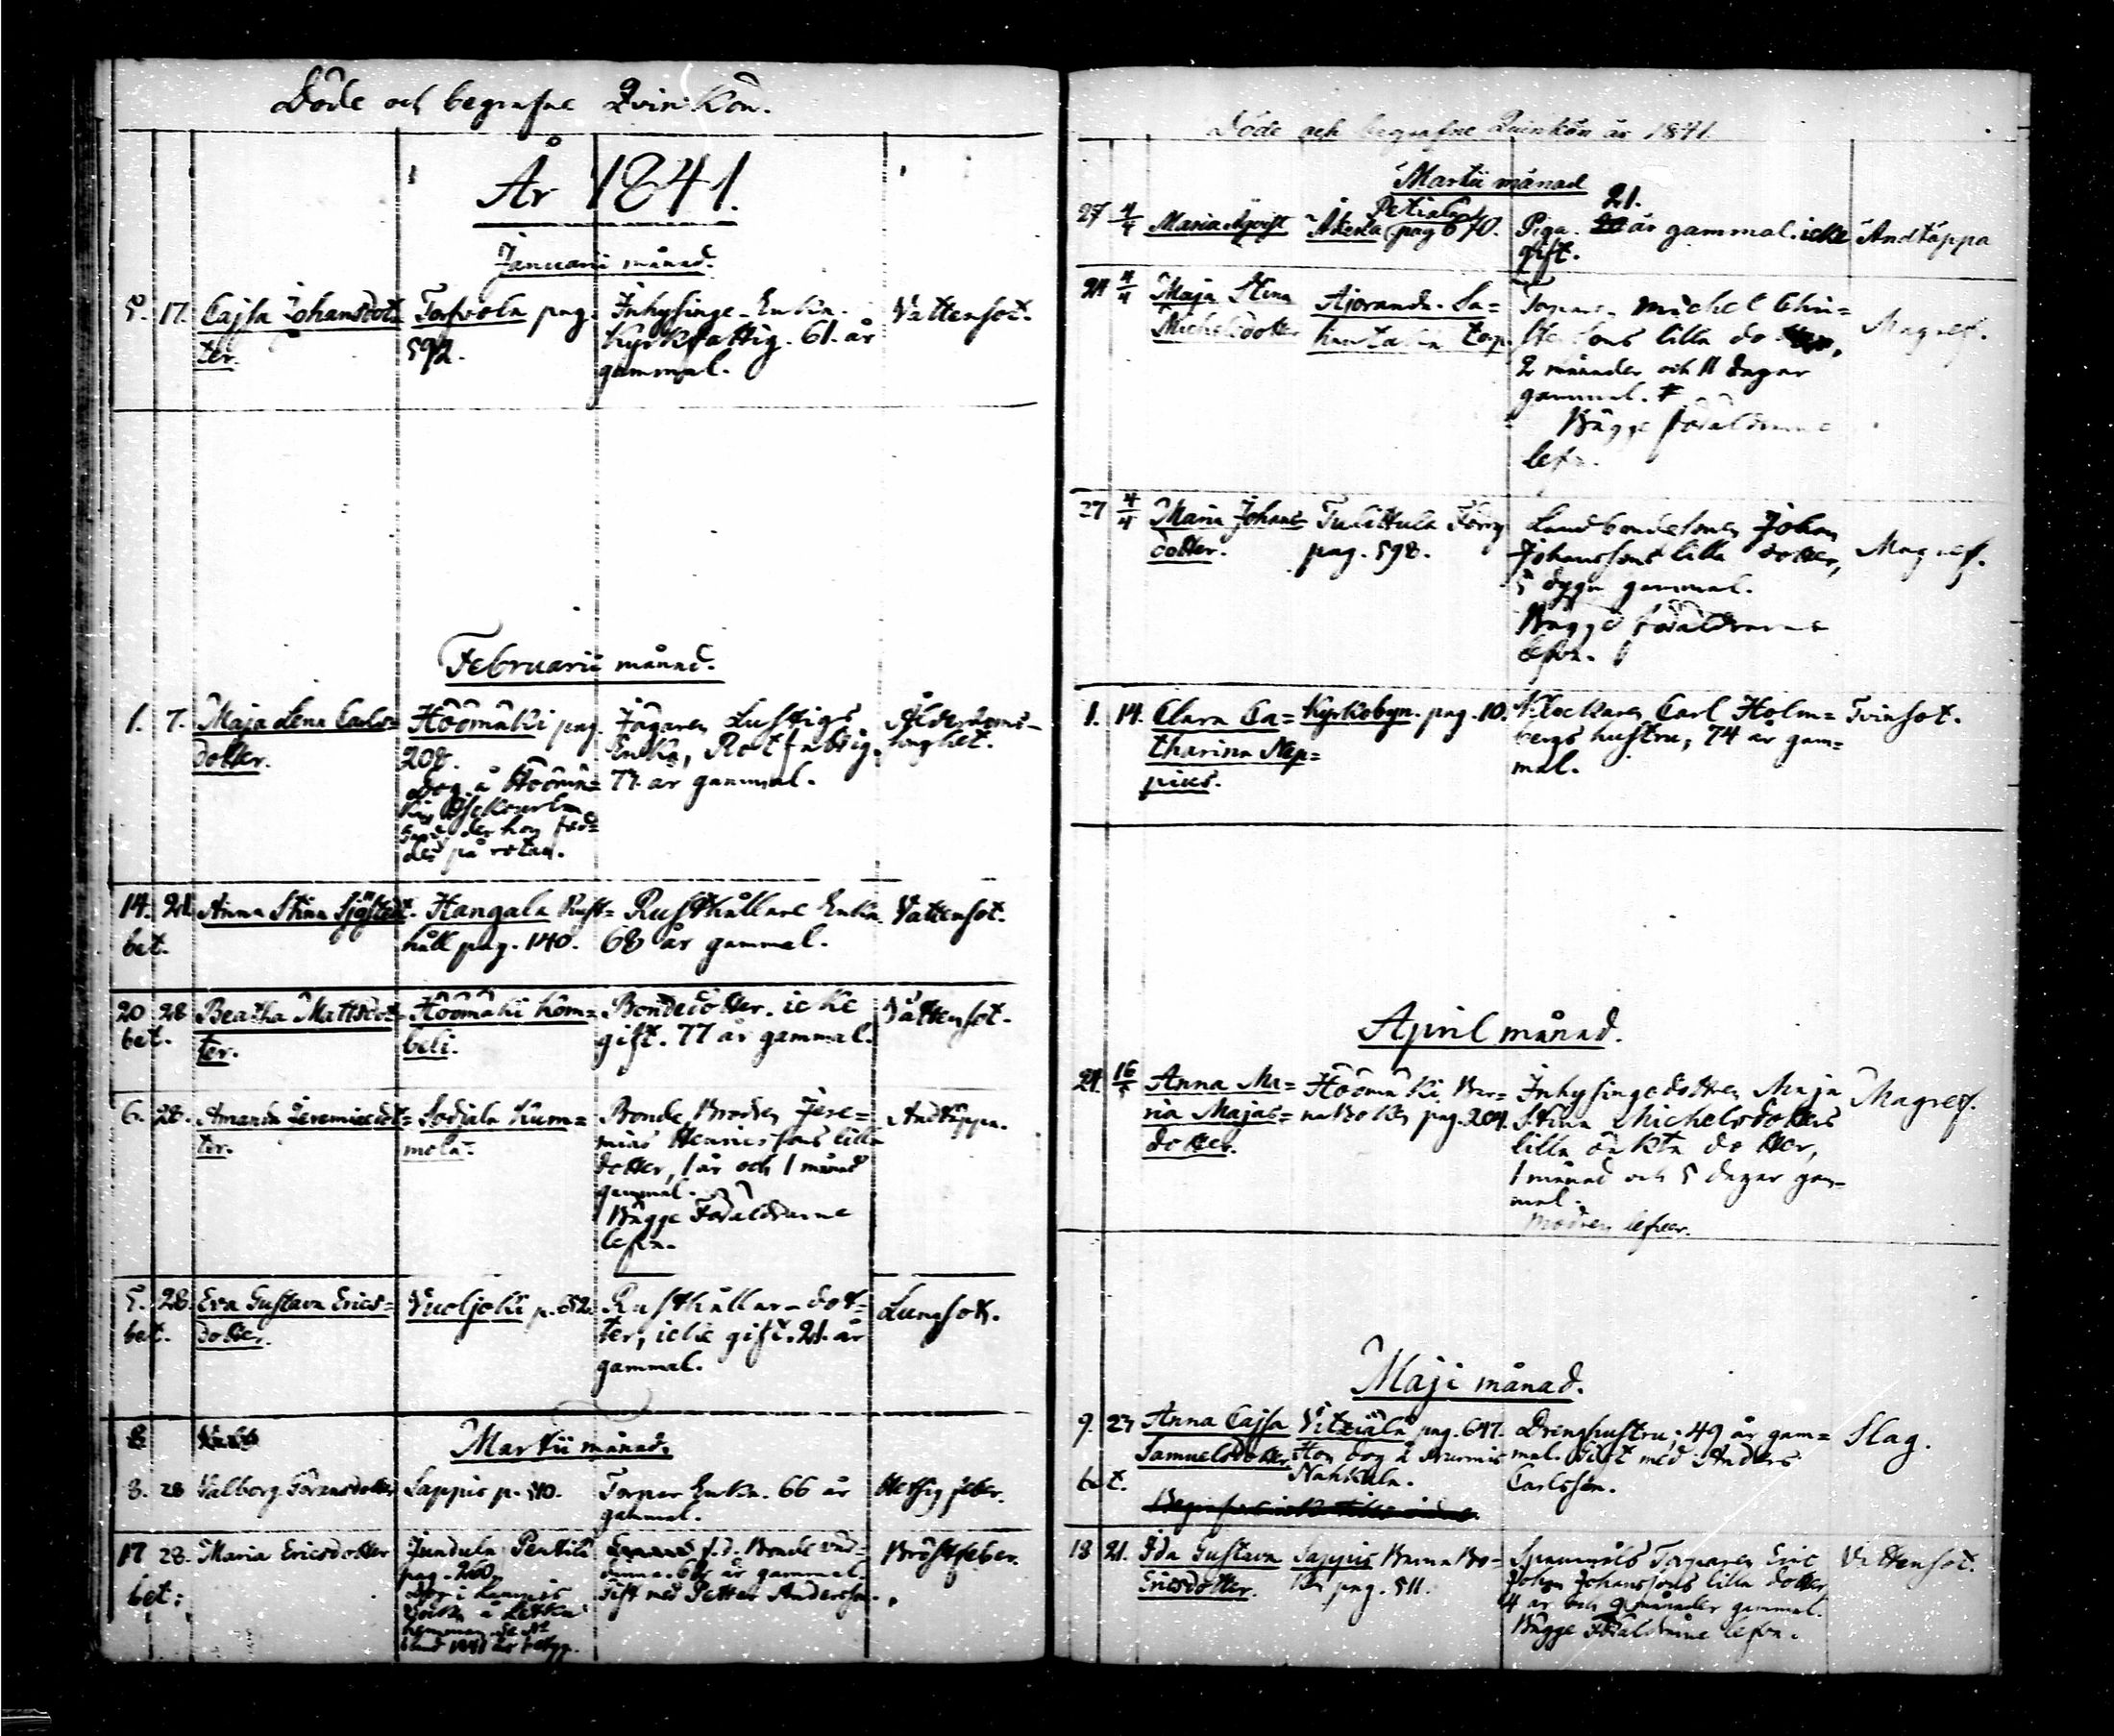 Döde och begrafne Qvinkön.
År 1841.
Januarii månad.
5. 17. Cajsa Johansdot-
ter.
Torfvola pag.
592.
Inhysinge-Enka.
Kyrkfattig. 61. år
gammal.
Vattensot.
Februarii månad.
1. 7. Maja Lena Carls=
dotter.
Höömäki pag.
208.
Dog å Höömä=
der hon föd=
des på rotan.
Jägaren Lustigs
Enka, Rotfattig.
77. år gammal.
Ålderdoms-
svaghet.
14. 21. Anna Stina Sjöstedt.
bet.
Hangala Rust=
håll pag. 140.
Rusthållare Enka.
68 år gammal.
Vattensot.
20 28 Beatha Mattsdot-
bet. ter.
Höömäki Kom=
beli.
Bondedotter. icke
gift. 77 år gammal.
Vattensot.
6. 28. Amanda Jeremiædot=
ter.
Sodjala Kum=
mola.
Bonde Broden Jere=
mias Henricssons lilla
dotter, 1 år och 1 månad
gammal.
Bägge Föräldrarne
lefva.
Andtäppa.
5. 28. Eva Gustava Erics=
bet. dotter.
Vuoljoki p. 652.
Rusthållar-dot=
ter, icke gift. 21. år
gammal.
Lungsot.
8
Martii månad.
8. 28 Valborg Göransdotter
Sappis p. 510.
Torpar Enka. 66 år
gammal.
Hetsig feber.
17 28. Maria Ericsdotter
bet:
Jundula Pentili
pag. 260.
Dog i
f.d. Bonde
år gammal.
Gift med Petter Andersson.
Bröstfeber.
Döde och begrafne Qvinkön år 1841.
Martii månad
27 4/4 Maria
pag 670.
21.
Piga. år gammal. icke
gift.
Andtäppa
24 4/4 Maja Stina
Michelsdotter
torp
Torparen Michel Chri=
stersons lilla dotter,
2 månader och 11 dagar
gammal.
Bägge föräldrarne
lefva.
Magref.
27 4/4 Maria Johans-
dotter.
Tulittula
pag. 598.
Landbondesonen Johan
Johanssons lilla dotter,
5 dygn gammal.
Bägge föräldrarne
lefva.
Magref.
1. 14. Clara Ca=
tharina Nep=
pius.
Kyrkobyn. pag. 10.
Klockaren Carl Holm=
bergs hustru, 74 år gam=
mal.
Tvinsot.
April månad.
24. 16/5 Anna Ma=
ria Majas=
dotter.
Höömäki, Bar=
naboken pag. 204.
Inhysingedottren Maja
Stina Michelsdotters
lilla oäkta dotter,
1 månad och 5 dagar gam-
mal.
Modren lefver.
Magref.
Maji månad.
9. 23 Anna Cajsa
Samuelsdotter
bet.
Vitziälä pag. 647.
Hon dog å Nurmis
Nahkala.
Dränghustru; 49 år gam=
mal. Gift med Anders
Carlsson.
Slag.
18 21. Ida Gustava
Ericsdotter.
Sappis Barnabo-
ken pag. 511.
Spannmåls Torparen Eric
Johan Johanssons lilla dotter
4 år och 9 månader gammal.
Bägge Föräldrarne lefva.
Vattensot.